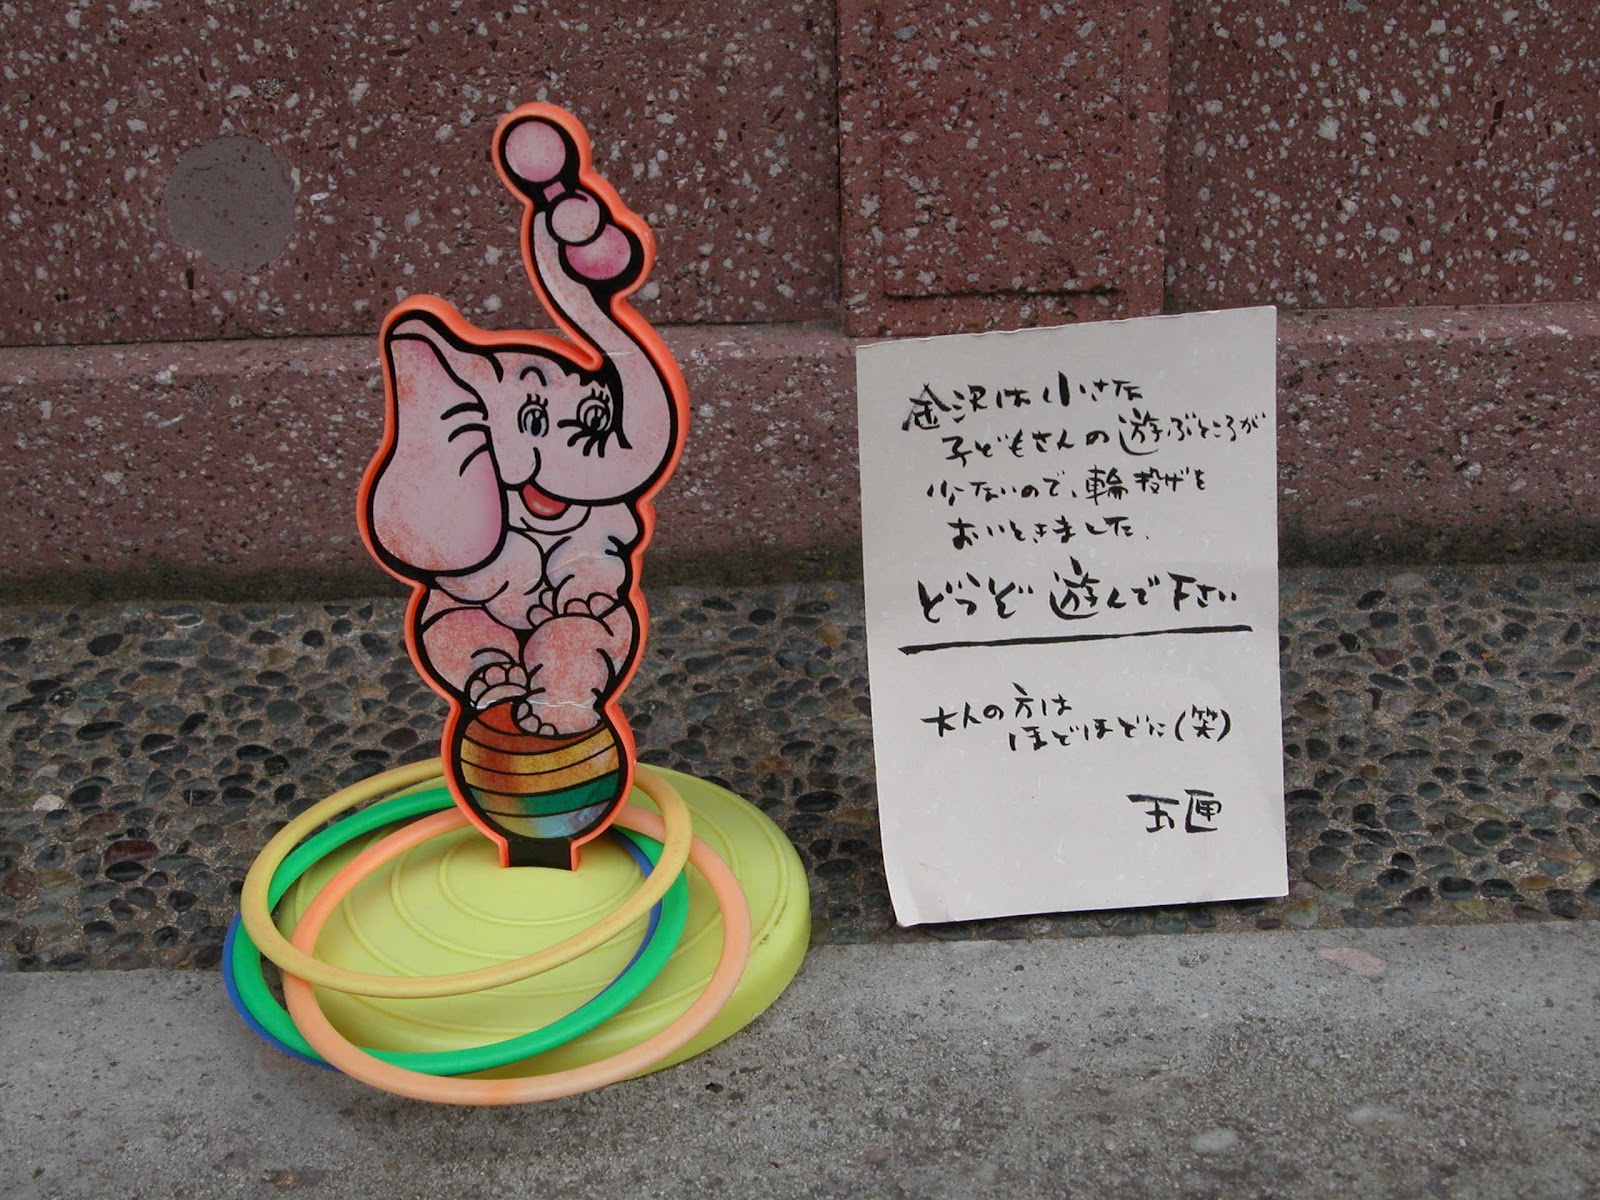 金沢は小さな
子どもさんの遊ぶところが
少ないので、輪投げを
おいときました。
どうぞ遊んで下さい
大人の方は
ほどほどに(笑)
玉匣